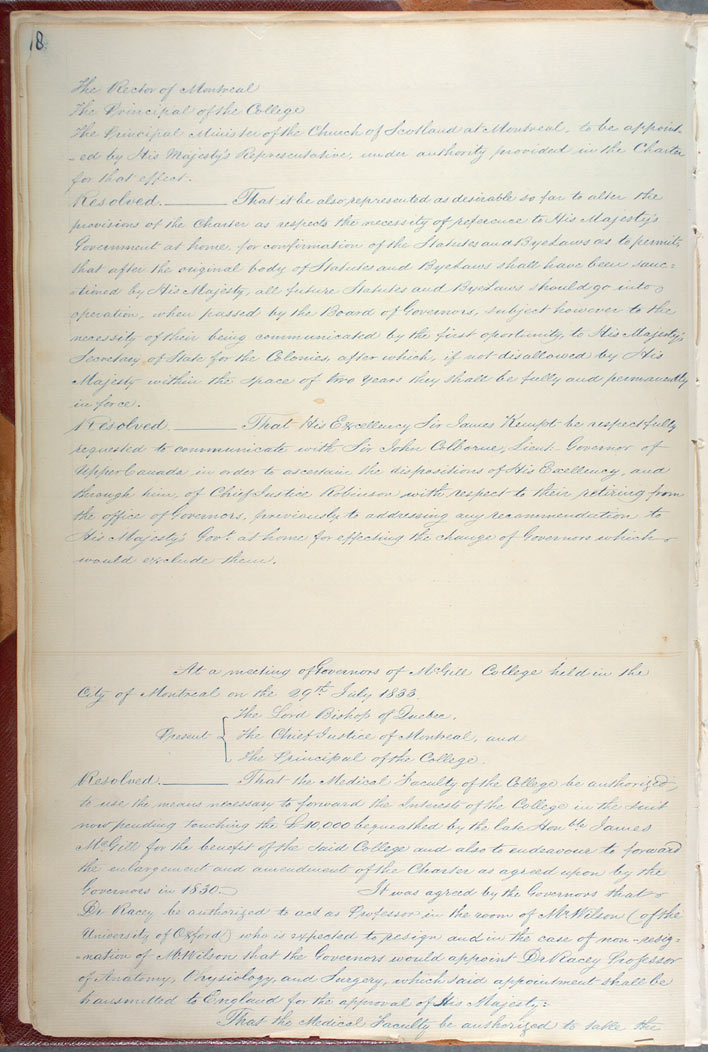 18
The Rector of Montreal
The Principal of the College
The Principal Minister of the Church of Scotland at Montreal, to be appoint-
-ed by His Majesty's Representative, under authority provided in the Charter
for that effect.
Resolved. ______ That it be also represented as desirable so far to alter the
provisions of the Charter as respects the necessity of reference to His Majesty's
Government at home for confirmation of the Statutes and Bye Laws as to permit,
that after the original body of Statutes and Bye Laws shall have been sanc=
tioned by His Majesty, all future Statutes and Bye Laws should go into
operation, when passed by the Board of Governors, subject however to the
necessity of their being communicated by the first oportunity to His Majesty's
Secretary of State for the Colonies, after which, if not disallowed by His
Majesty within the space of two years they shall be fully and permanently
in force.
Resolved. ______ That His Excellency Sir James Kempt be respectfully
requested to communicate with Sir John Colborne, Lieut- Governor of
Upper Canada in order to ascertain the dispositions of His Excellency, and
through him, of Chief Justice Robinson with respect to their retiring from
the office of Governors, previously to addressing any recommendation to
His Majesty's Govt. at home for effecting the change of Governors which
would exclude them.
At a meeting of Governors of McGill College held in the
City of Montreal on the 29th July 1833.
The Lord Bishop of Quebec,
Present { The Chief Justice of Montreal, and
The Principal of the College.
Resolved. ______ That the Medical Faculty of the College be authorized
to use the means necessary to forward the Interests of the College in the suit
now pending touching the £10,000 bequeathed by the late Honble James
McGill for the benefit of the said College and also to endeavour to forward
the enlargement and amendment of the Charter as agreed upon by the
Governors in 1830. It was agreed by the Governors that
Dr Racey be authorized to act as Professor in the room of Mr Wilson (of the
University of Oxford) who is expected to resign and in the case of non-resig=
-nation of Mr Wilson that the Governors would appoint Dr Racey Professor
of Anatomy, Physiology, and Surgery, which said appointment shall be
transmitted to England for the approval of His Majesty:
That the Medical Faculty be authorized to take the